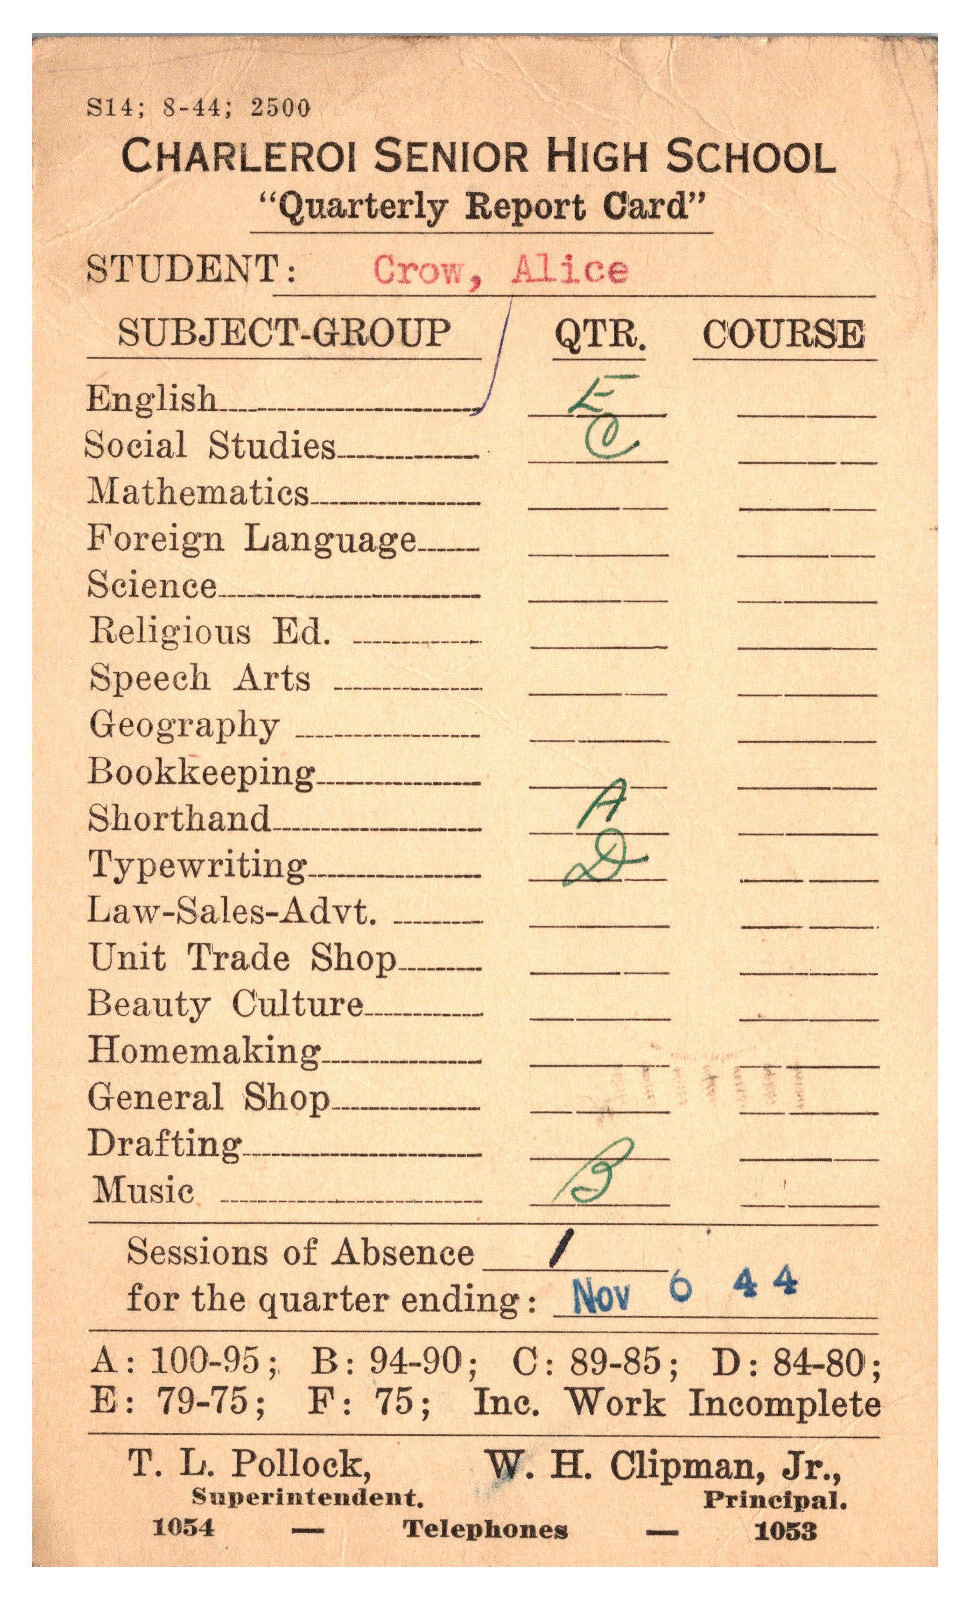 S14; 8-44; 2500
CHARLEROI SENIOR HIGH SCHOOL
"Quarterly Report Card"
STUDENT: Crow, Alice
SUBJECT-GROUP QTR. COURSE
English E
Social Studies C
Mathematics
Foreign Language
Science
Religious Ed.
Speech Arts
Geography
Bookkeeping
Shorthand A
Typewriting D
Law-Sales-Advt.
Unit Trade Shop
Beauty Culture
Homemaking
General Shop
Drafting
Music B
Sessions of Absence 1
for the quarter ending: Nov 6 44
A: 100-95; B: 94-90; C: 89-85; D: 84-80;
E: 79-75; F: 75; Inc. Work Incomplete
T. L. Pollock, W. H. Clipman, Jr.,
Superintendent. Principal.
1054 — Telephones — 1053